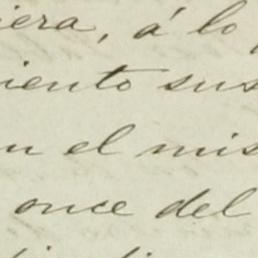 iera, á lo
iento sus
n el mis
once del